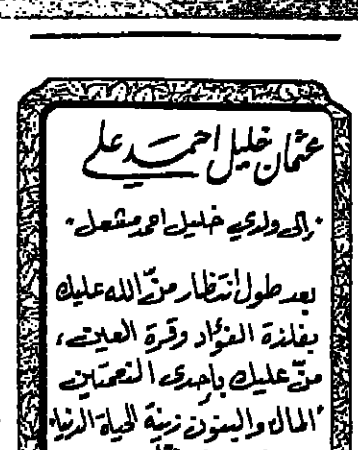 عثمان خليل احمد علي
"إلى ولدي خليل احمد مشعل"
بعد طول انتظار منّ الله عليك
بفلذة الفؤاد وقرة العين ،
منّ عليك بإحدى النعمتين
"المال والبنون زينة الحياة الدنيا"